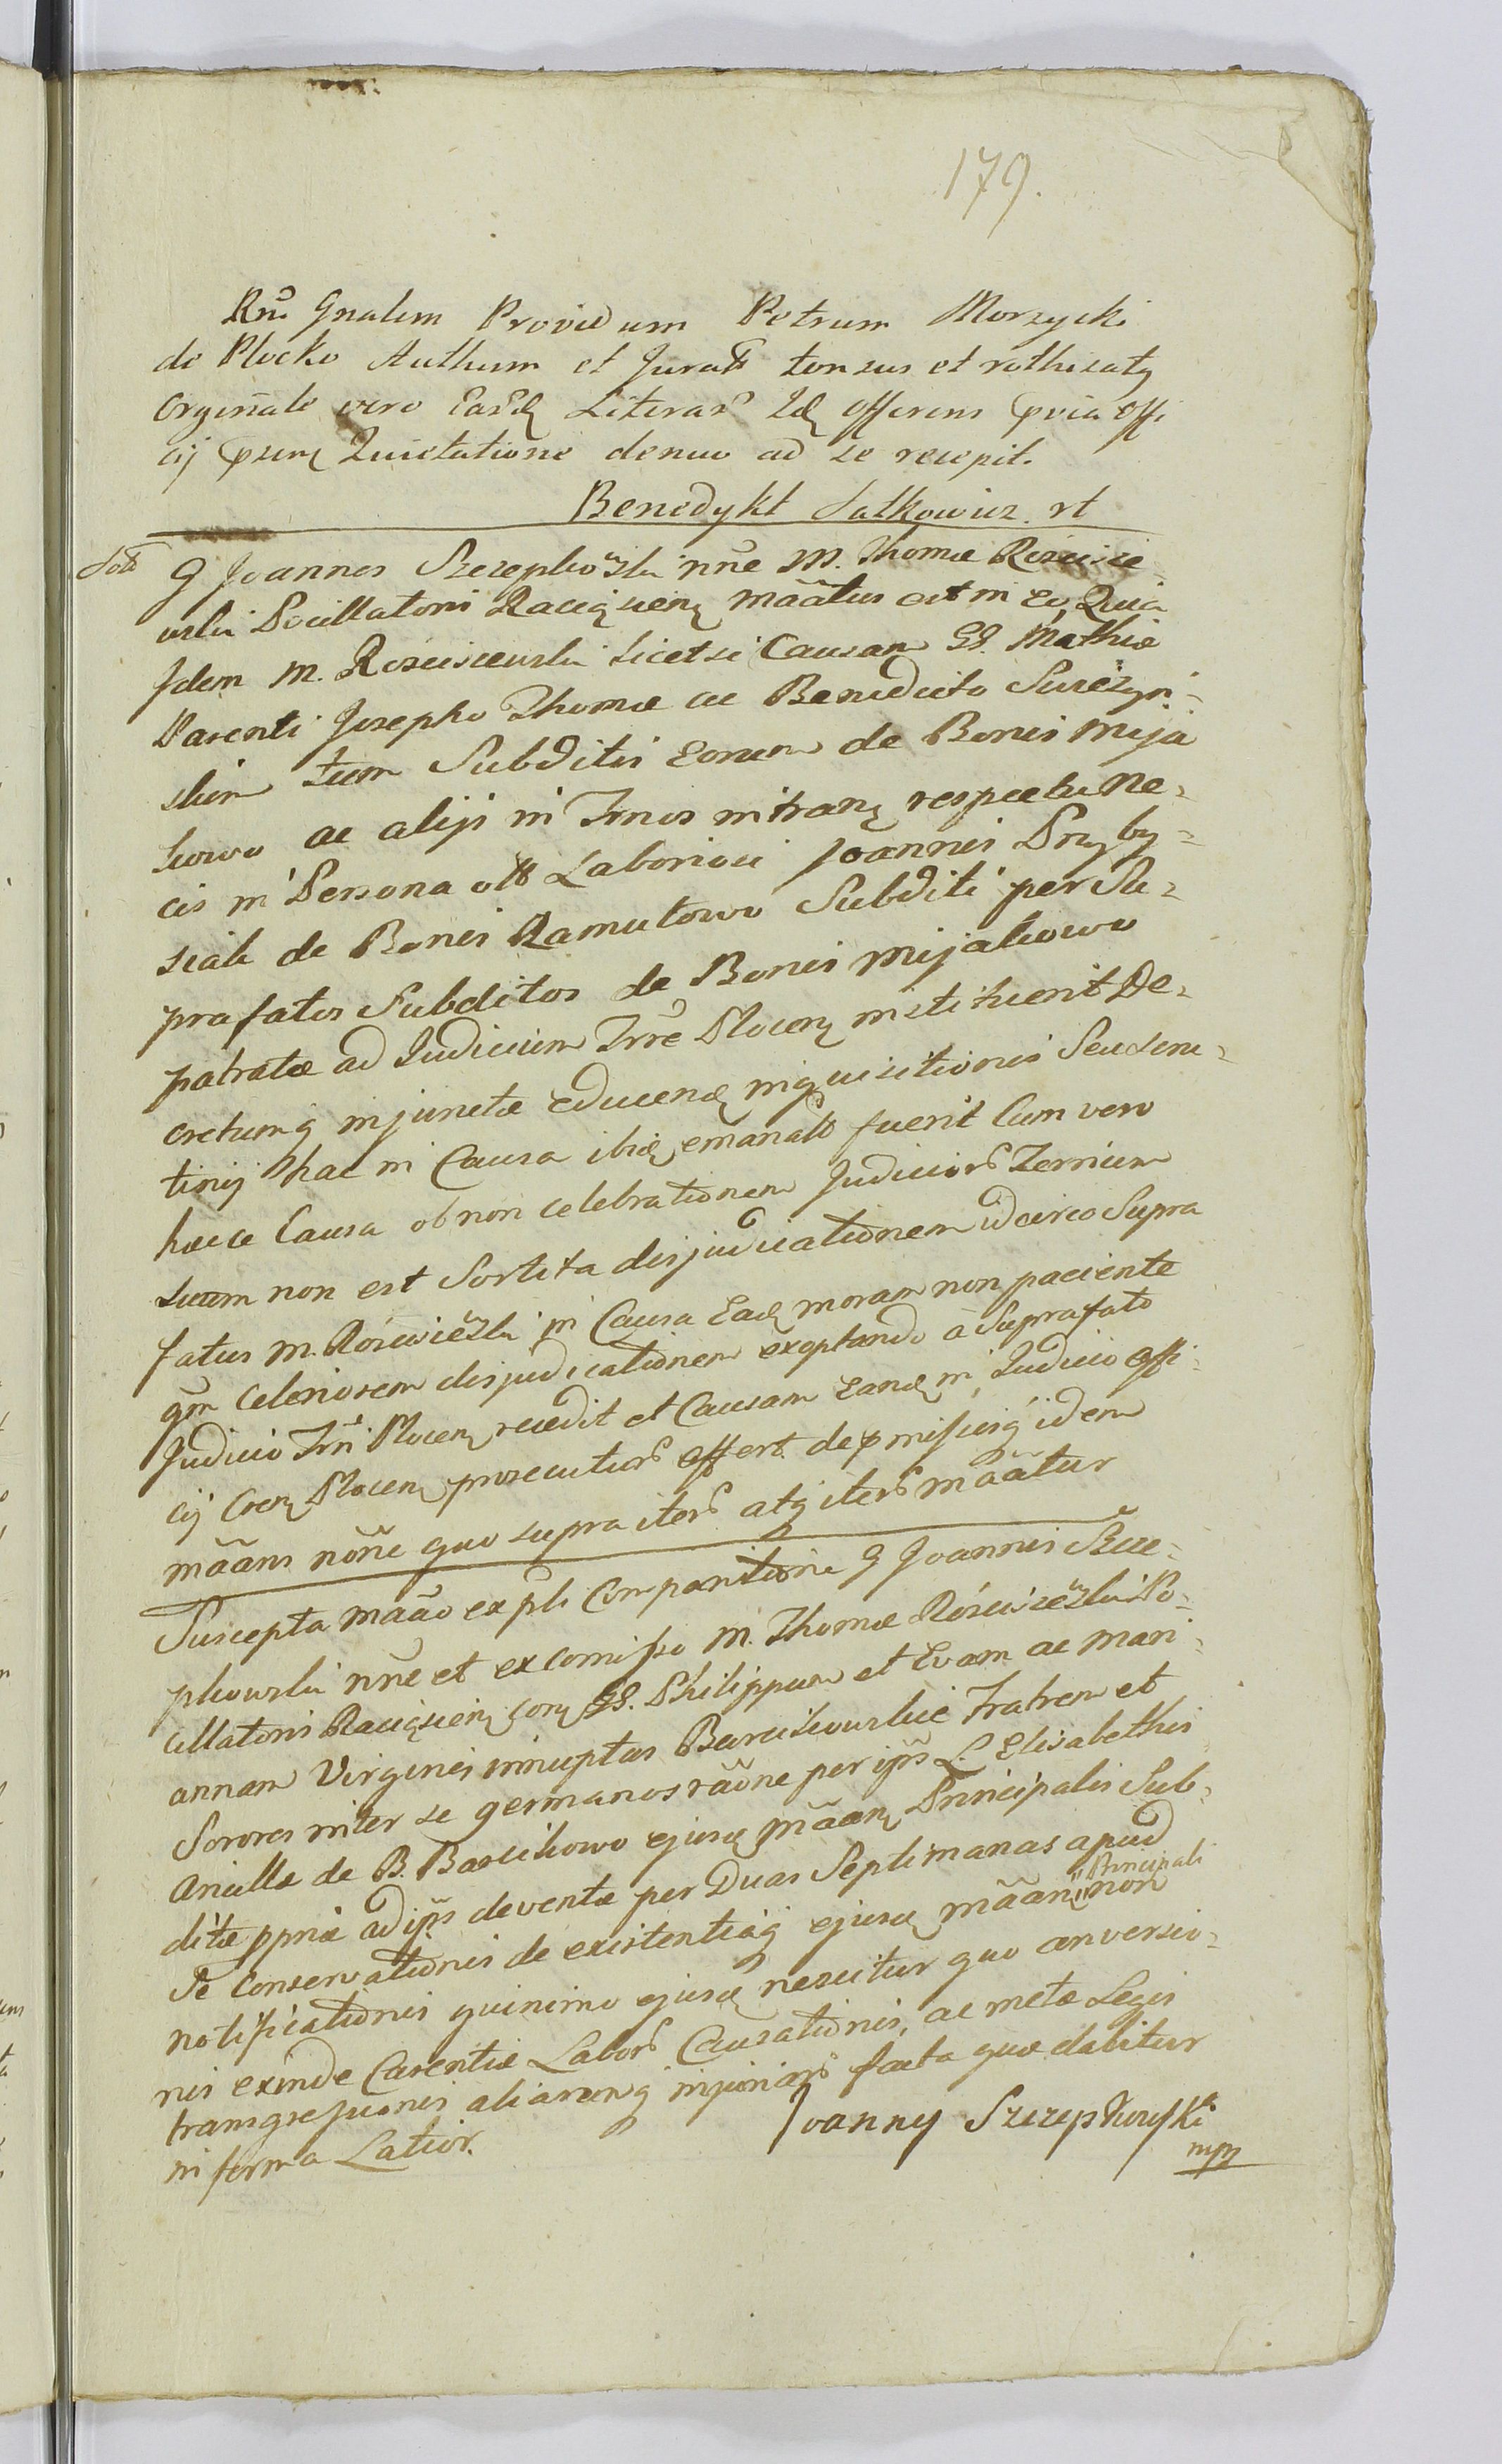 179.
Rni Gnalem Providum Petrum Morzycki
de Plocko Authum et Juratt tensus et rothizatg
Orginale vero Easd Literas Id Offerens pvia Offi
cij psens Quietatione denuo ad se recepit.
Benedykt Satkowicz rt
Sott G Joannes Szczepkowski nne M. Thomæ Rościsze
wski Pocillatoris Raciąziens mãatus est in Eo, Quia
Idem M. Rościszewski licet si Causam GG. Mathiæ
Parenti Josepho Thomæ ac Benedicto
skim tum Subditis eorum de Bonis Mija
kowo ac aliji in Trnos intrans respectu ne-
cis in Persona ott Laboriosi Joannis Przyby-
siak de Bonis Ramutowo Subditi per Su-
prafatos Subditos de Bonis Mijakowo
patratæ ad Judicium Trre Plocens instituerit De-
cretumq injunctæ educend inquisitionis Seu Scru-
tinij hac in Causa ibid emanatt fuerit Cum vero
hæcce Causa ob non celebrationem Judicior Terrium
suam non est Sortita disjudicationem idcirco Supra
fatus M. Rościszewski in Causa Ead moram non paciente
qm Celeriorem disjudicationem exoptando à Suprafato
Judicio Trri Plocens recedit et Causam Eand in Judicio Offi-
cij Cren Plocens prosecutur offert de pmissisq idem
mãans nõne quo supra iter atq iter mãatur
Suscepta mãao ex pli Comparitione G Joannis Szcze-
pkowski nne et ex comisso M. Thomæ Rościszewski Po-
cillatoris Raciąziens cora GG. Philippum et Evam ac Mari-
annam Virgines innuptas Barcikowskie Fratrem et
Sorores inter se germanos rãone per ips L. Elisabethis
Ancillæ de B. Barcikowo ejusd mãans Principalis Sub-
ditæ ppriæ ad ips deventæ per Duas Septimanas apud
Se conservationis de existentiaq ejusd mãani Principali non
notificationis quinimo ejusd nescitur quo anversio-
nis exinde Carentiæ Labor Causationis, ac metæ Legis
transgressionis aliarumq injuriar facta quæ dabitur
in forma Latior.
Joannes Szczepkowski
mpp